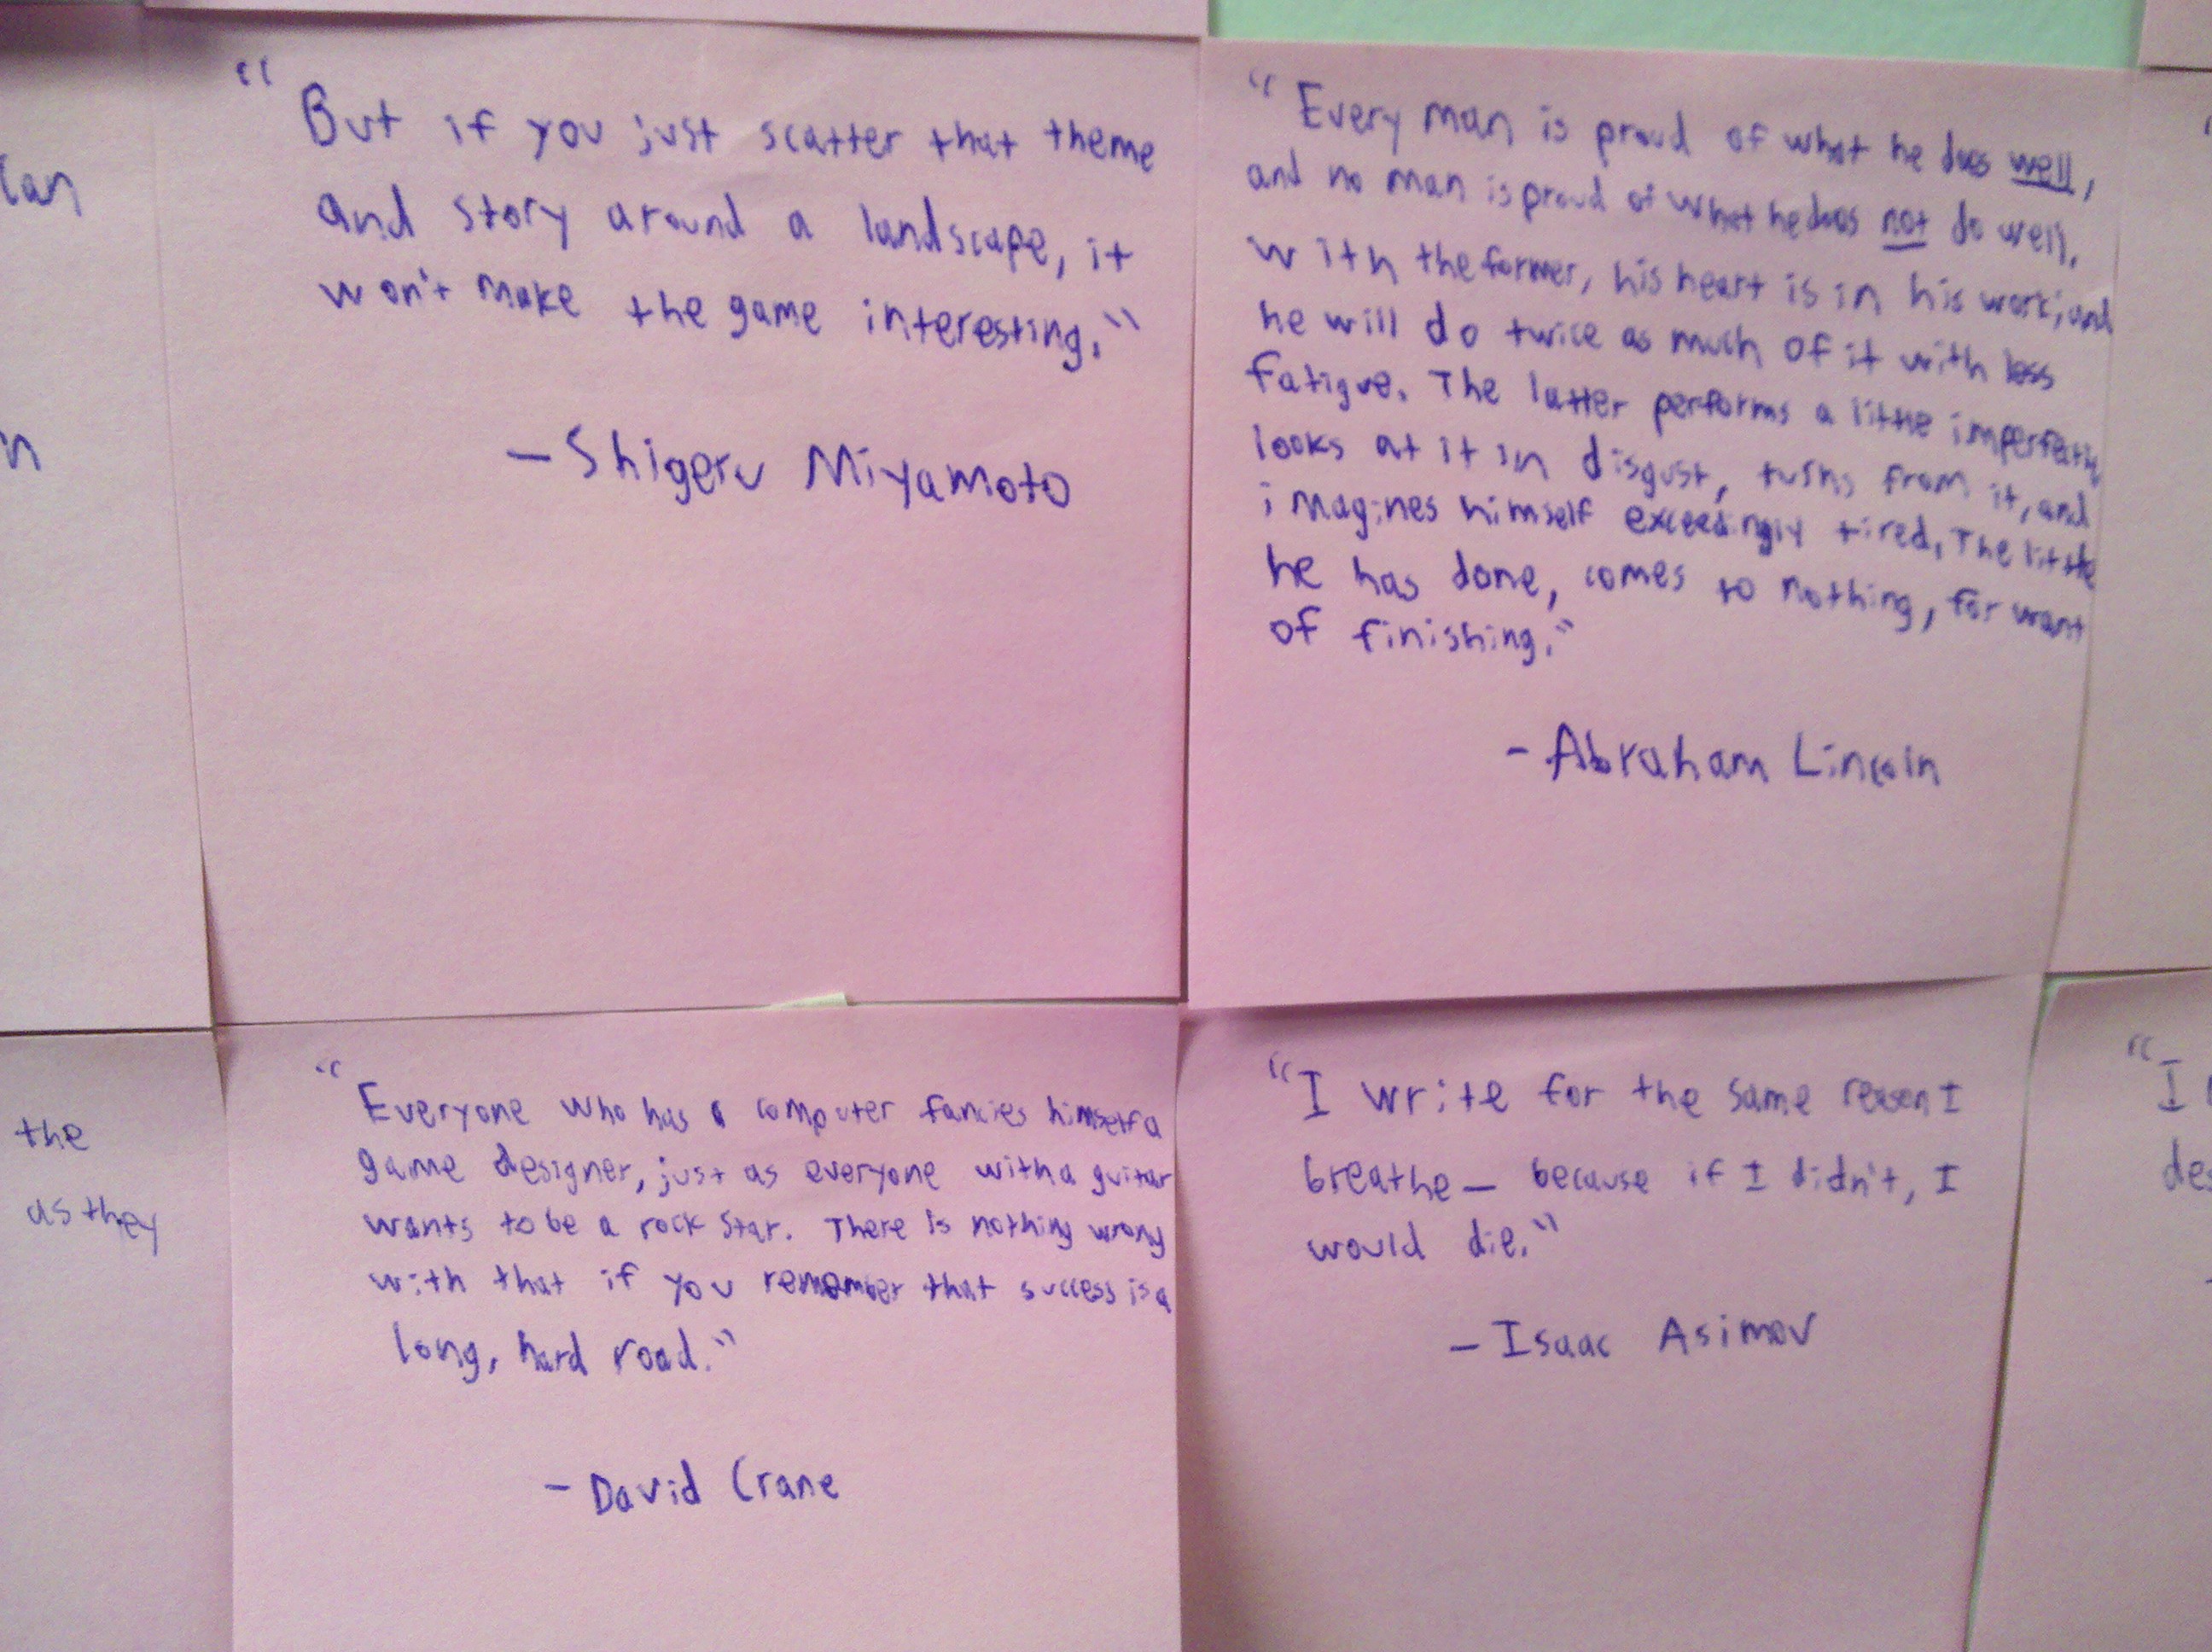 "But if you just scatter that theme
and story around a landscape, it
won't make the game interesting."
- Shigeru Miyamoto
"Every man is proud of what he does well,
and no man is proud of what he does not do well.
with the former, his heart is in his work; and
he will do twice as much of it with less
fatigue. The latter performs a little imperfectly
looks at it in disgust, turns from it, and
imagines himself exceedingly tired. The little
he has done, comes to nothing, for want
of finishing."
- Abraham Lincoln
"Everyone who has a computer fancies himself a
game designer, just as everyone with a guitar
wants to be a rock star. There is nothing wrong
with that if you remember that success is a
long, hard road."
- David Crane
"I write for the same reason I
breathe — because if I didn't, I
would die."
- Isaac Asimov
the
as they
"I